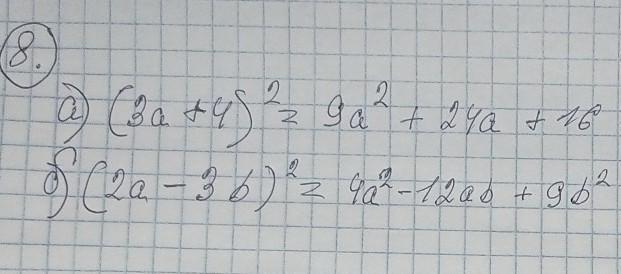 8.
а) (3a + 4)² = 9a² + 24a + 16
б) (2a - 3b)² = 4a² - 12ab + 9b²